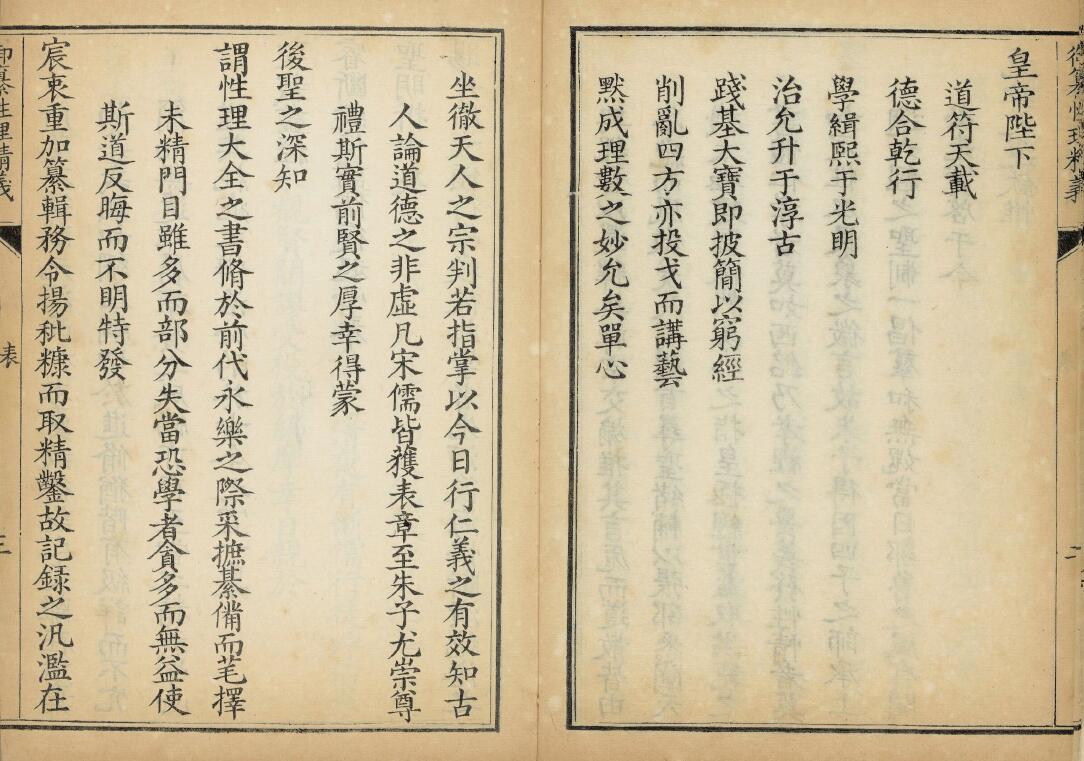 御纂性理精義
二
皇帝陛下
道符天載
德合乾行
學緝熙于光明
治允升于淳古
踐基大寶即披簡以窮經
削亂四方亦投戈而講藝
默成理數之妙允矣單心
坐徹天人之宗判若指掌以今日行仁義之有效知古
人論道德之非虛凡宋儒皆獲表章至朱子尤崇尊
禮斯實前賢之厚幸得蒙
後聖之深知
謂性理大全之書脩於前代永樂之際采摭綦備而芼擇
未精門目雖多而部分失當恐學者貪多而無益使
斯道反晦而不明特發
宸衷重加纂輯務令揚秕糠而取精鑿故記録之汎濫在
御纂性理精義
表
三